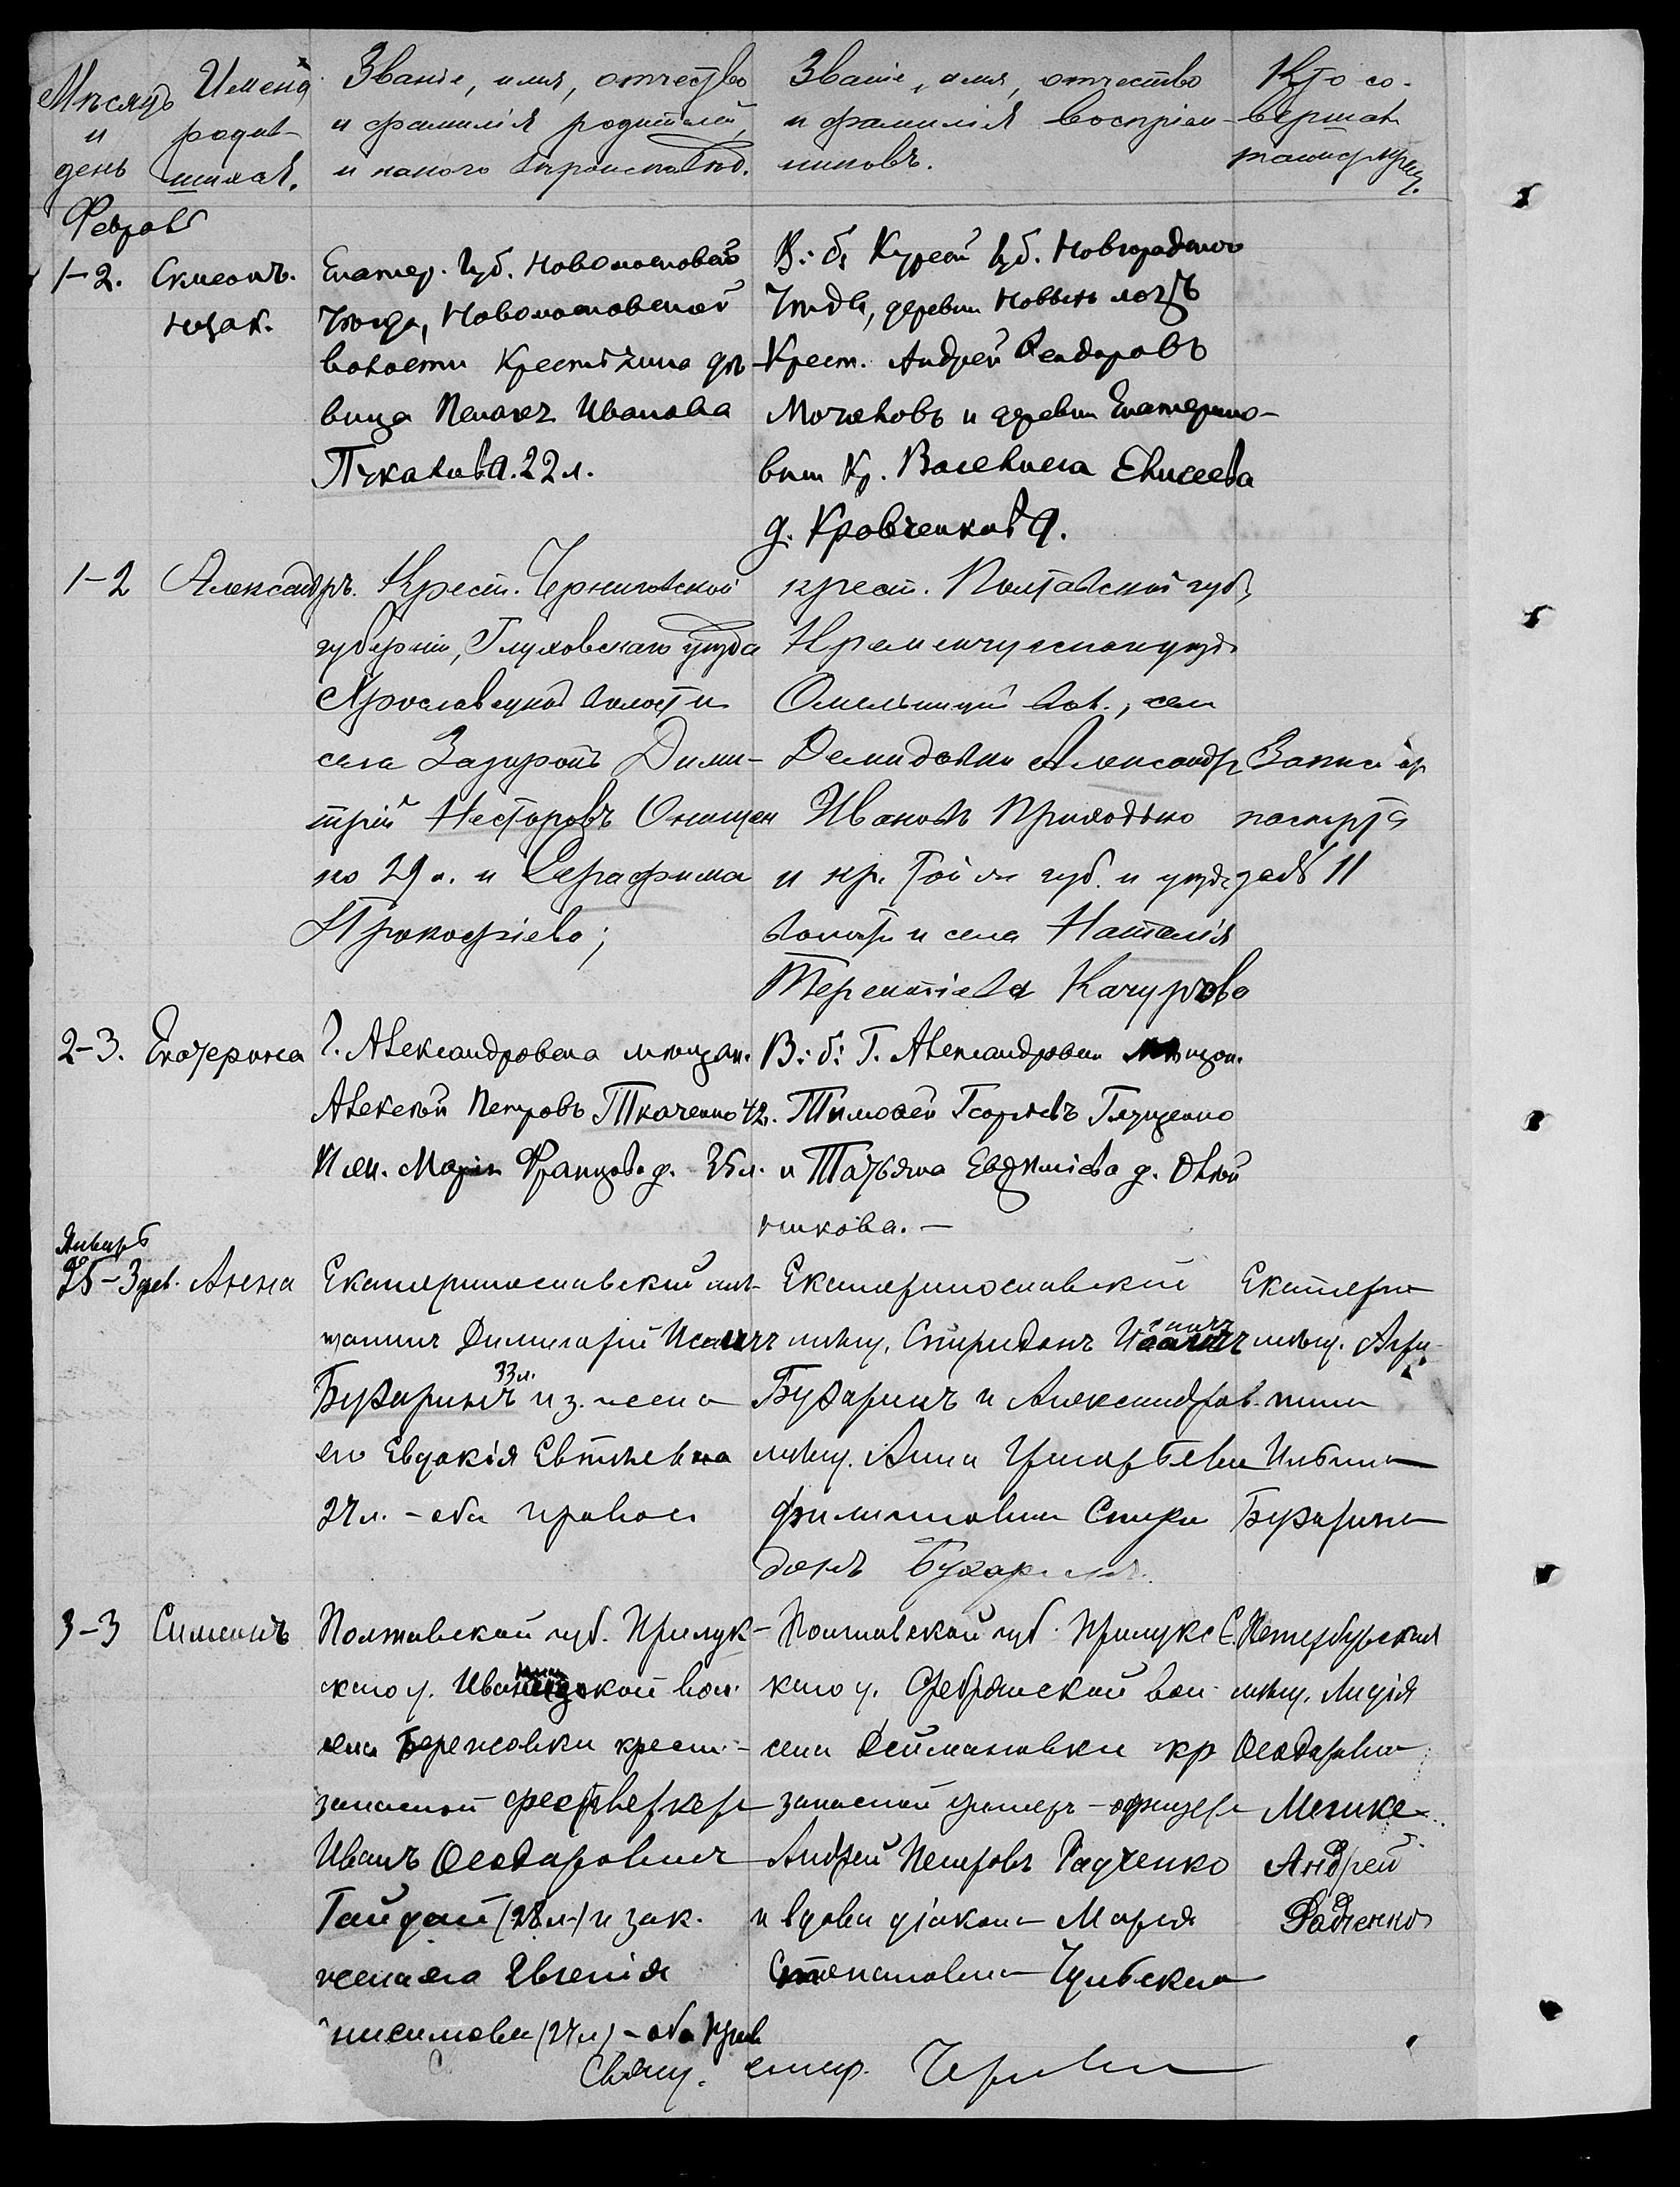 Мѣсяцъ и день
Имена родив-шихся.
Званіе, имя, отчество и фамилія родителей, и какого вѣроисповѣд.
Званіе, имя, отчество и фамилія воспріем-никовъ.
Кто со-вершал таинс. крещ.
Февраль
1-2.
Симеонъ.
незак.
Екатер. Губ. Новомосковскаго
Уѣзда, Новомосковской
волости Крестьянка дѣ-
вица Иванова
22 л.
В: б: Курской Губ. Новгородскаго
Уѣзда, деревни
Крест. Андрей Феодоровъ
Мочаловъ и деревни Екатерино-
вки Кр. Василиса Елисеева
д. Кровченкова.
1-2
Александръ.
Крест. Черниговской
губерніи, Глуховскаго уѣзда
Ярославецкой волости
села Дими-
трій Несторовъ Онищен
ко 29 л. и Серафима
Прокофіева;
крест. Полтавской губ.
Кременчугскаго уѣзд.
Омельницкой вол., села
Демидовки Александр
Ивановъ Приходько
и кр. той же губ. и уѣзд.
волости и села Наталія
Терентіева Качурова
Запис.
паспорта
11
2-3.
Екатерина
Г. Александровска мѣщан.
Алексѣй Петровъ Ткаченко 42.
И жен. Марія Францова д. 35 л.
В: б: Г. Александровска мѣщан.
Тимофей Георгіевъ Глущенко
и Татьяна Евдокимова д. Олей
никова. —
Январь
25-3 фев.
Анна
Екатеринославскій мѣ-
щанинъ Димитрій Исаичъ
Бухаринъ 33 л. и з. жена
его Евдокія Евтѣевна
27 л. - оба правосл
Екатеринославскій
мѣщ. Спиридонъ Исаичъ
Бухаринъ и Александров.
мѣщ. Анна Григорьевна
Филиппова Спири
донъ Бухаринъ
Екатерин
мѣщ. Агри
пина
Ильина
Бухарина
3-3
Симеонъ
Полтавской губ. Прилук-
скаго у. Иваницкой вол.
села Бережовки крест.-
запасной фейерверкеръ
Иванъ Феодоровичъ
Гайдай (28 л.) и зак.
жена его Евгенія
нисимовна (27 л) - оба прав
Полтавской губ. Прилукс
каго у. Сребрянской вол.
села Деймановки кр
запасной унтеръ-офицеръ
Андрей Петровъ Радченко
и вдова діакона Марія
Степановна
С. Петербургская
мѣщ. Лидія
Феодоровна
Андрей
Радченко
Свящ.